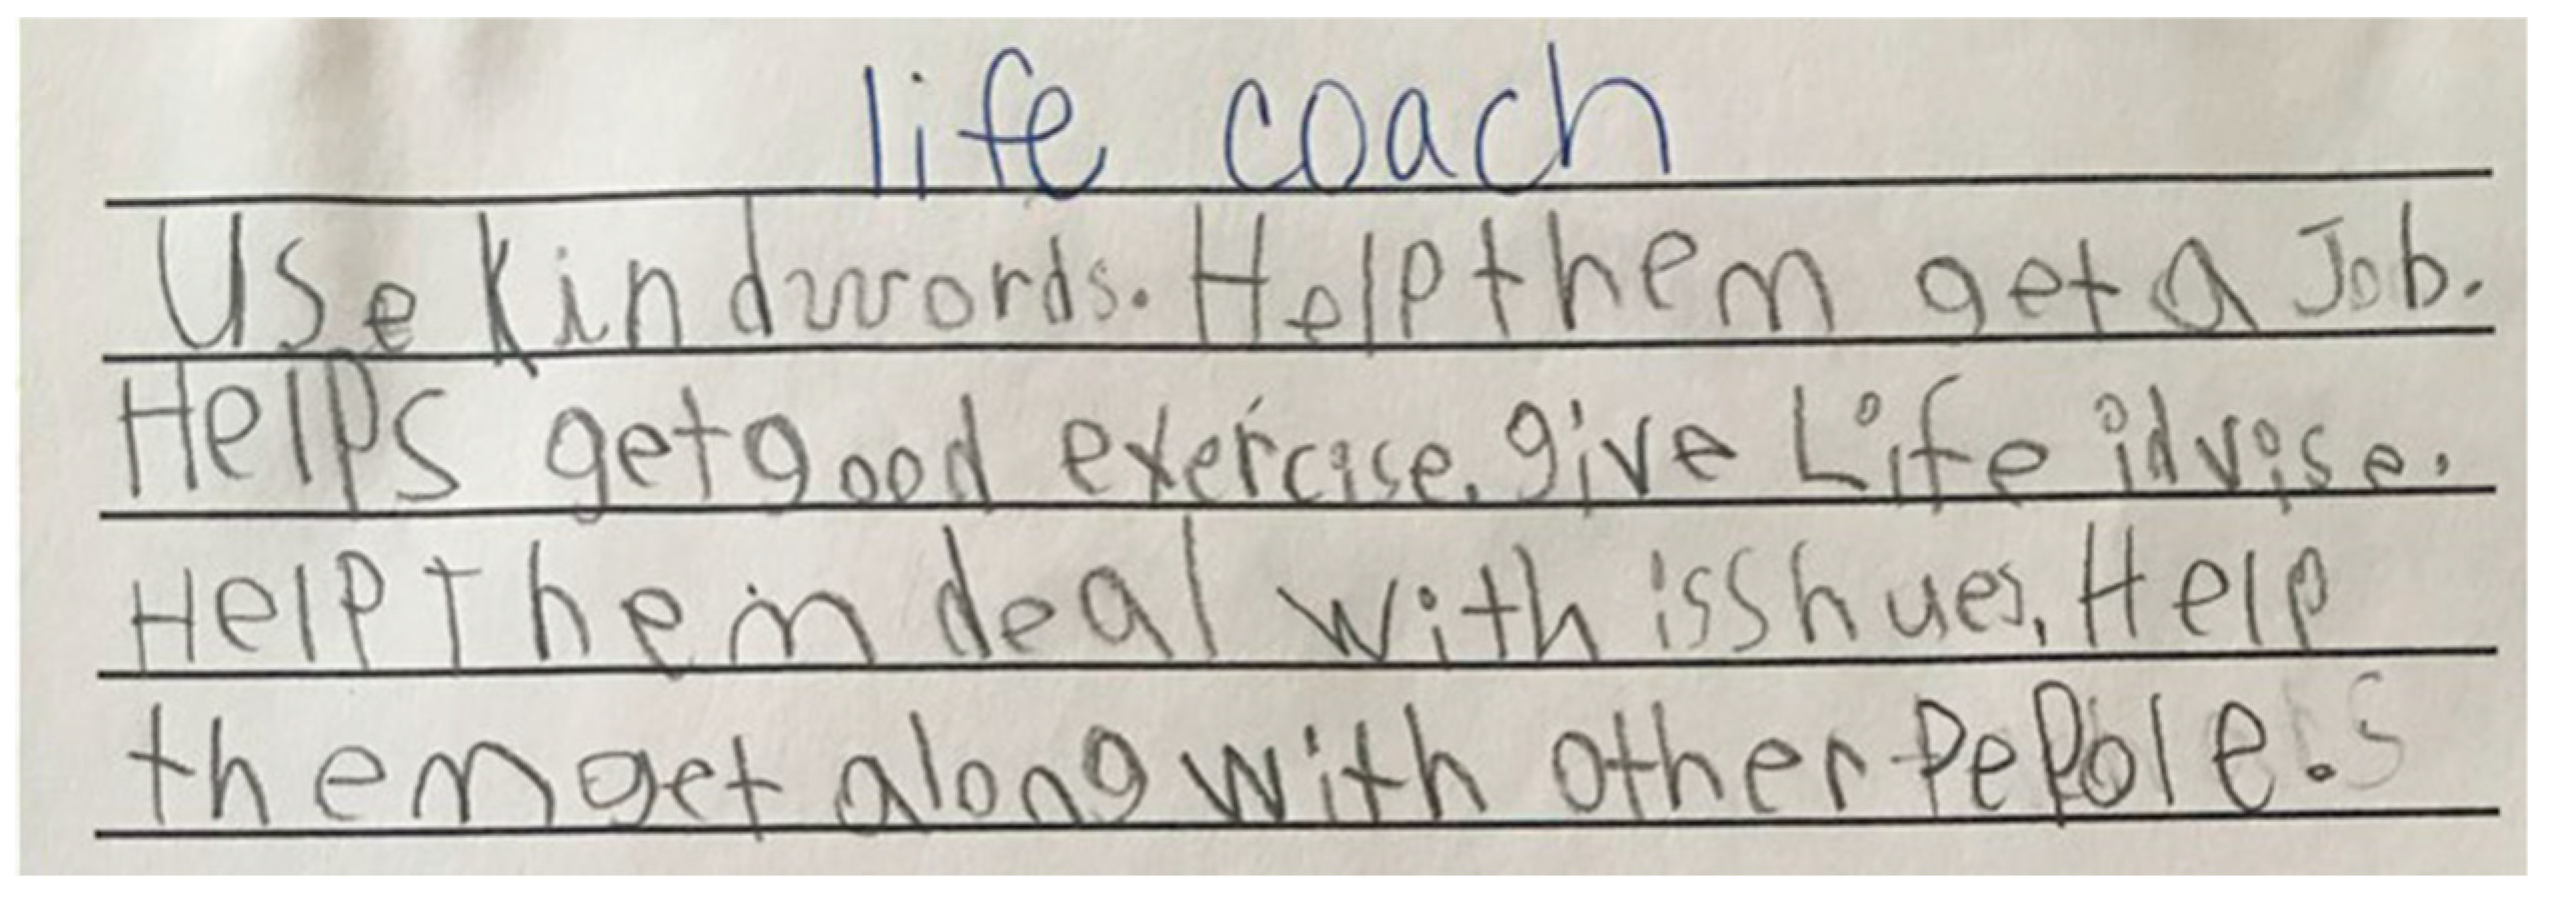 life coach
Use kind words. Help them get a Job.
Helps get good exercise. give Life idvise.
Help them deal with isshues. Help
them get along with other pepole.